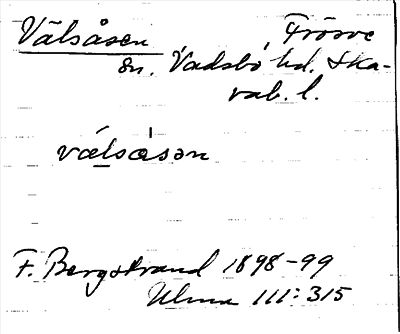 Välsåsen Frösve
sn. Vadsbo hd. Ska-
rab. l.
vǽlsåsən
F. Bergstrand 1898-99
Ulma 111:315